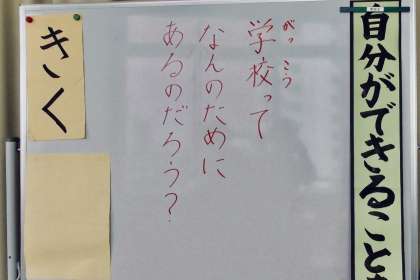 自分ができることを
がっこう
学校って
なんのために
あるのだろう？
きく